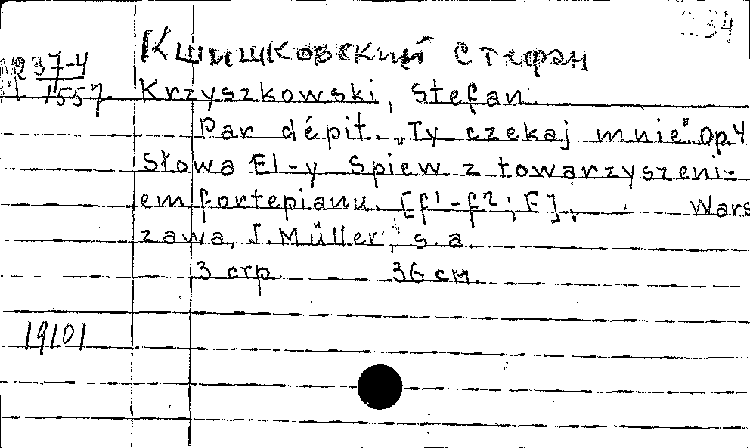 34
Кшишковский Стефан
М 237-4
1557
Krzyszkowski, Stefan.
Par dépit. „Ty czekaj mnie" op4
Słowa El-y Spiew z towarzyszeni-
em fortepianu. [f¹-f²; F]. Wars
zawa, J. Müller, s. a.
3 стр. 36 см.
19101